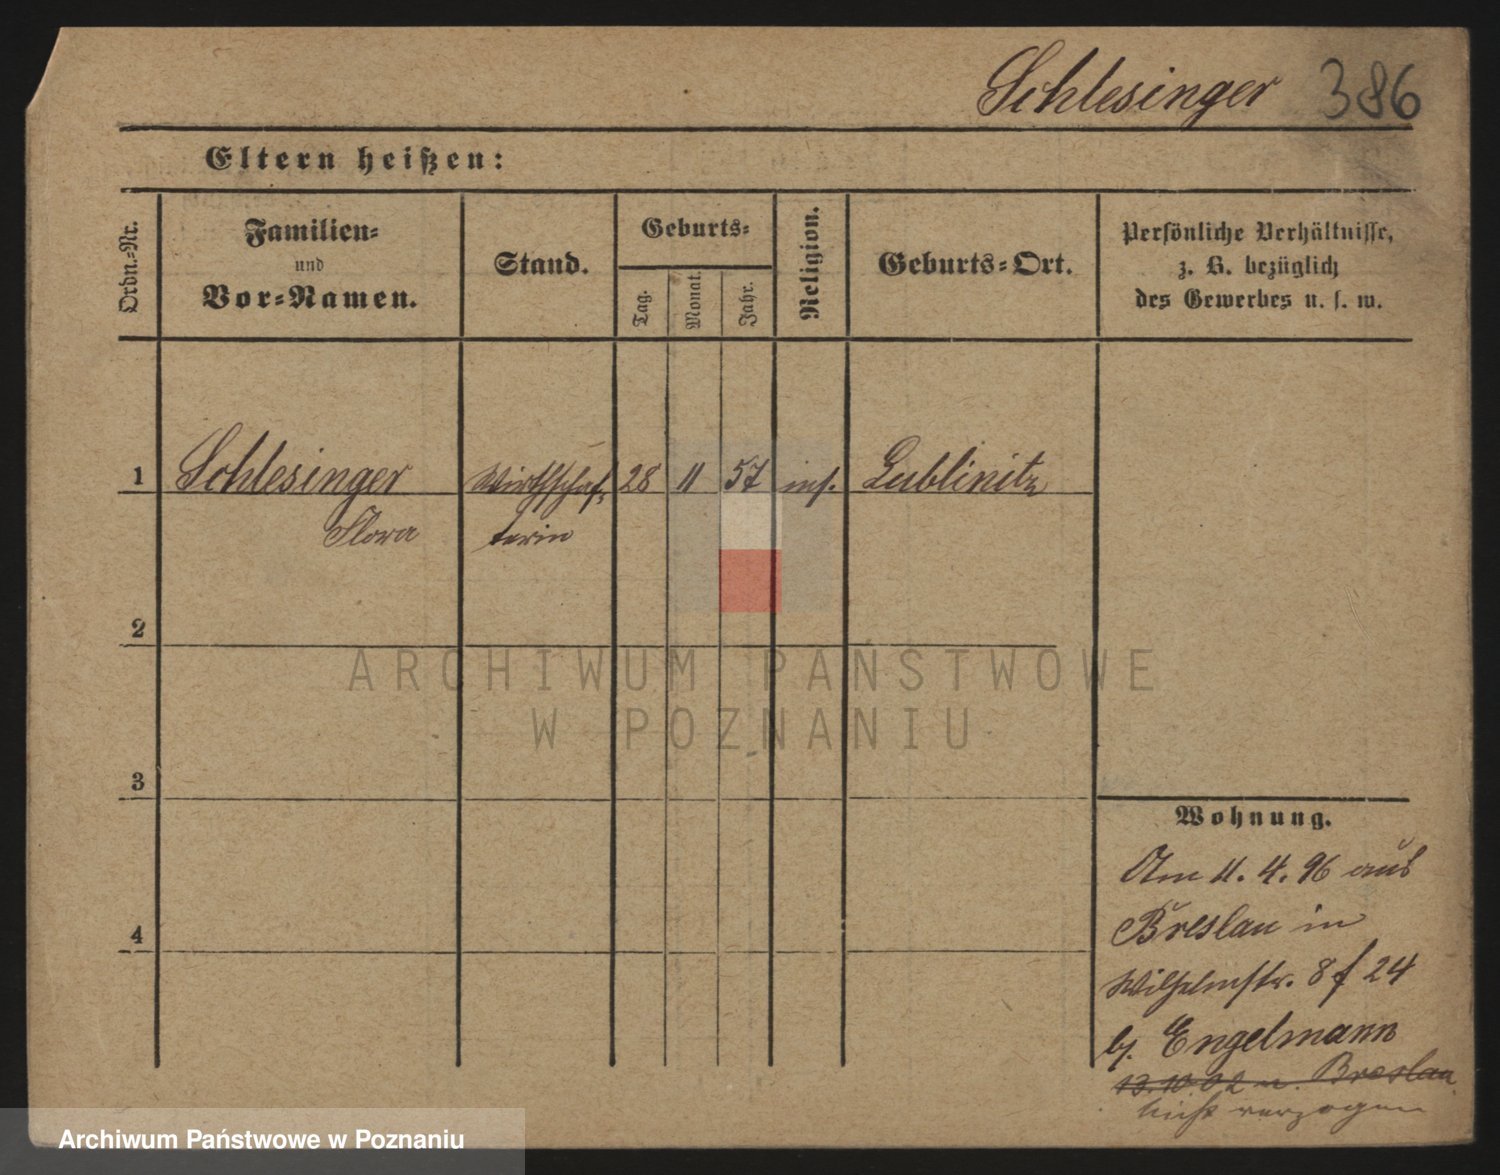 Schlesinger 386
Eltern heißen:
Ordn.-Nr.
Familien=
und
Vor=Namen.
Stand.
Geburts=
Tag.
Monat.
Jahr.
Religion.
Geburts=Ort.
Persönliche Verhältnisse,
z. B. bezüglich
des Gewerbes u. s. w.
1 Schlesinger Wirthschaf= 28 11 57 Lublinitz
Flora terin
2
3
4
Wohnung.
Am 11. 4. 96 aus
Breslau in
Wilhelmstr. 8 f 24
bj. Engelmann
13.10.02 n. Breslau
nicht verzogen
ARCHIWUM PAŃSTWOWE
W POZNANIU
Archiwum Państwowe w Poznaniu